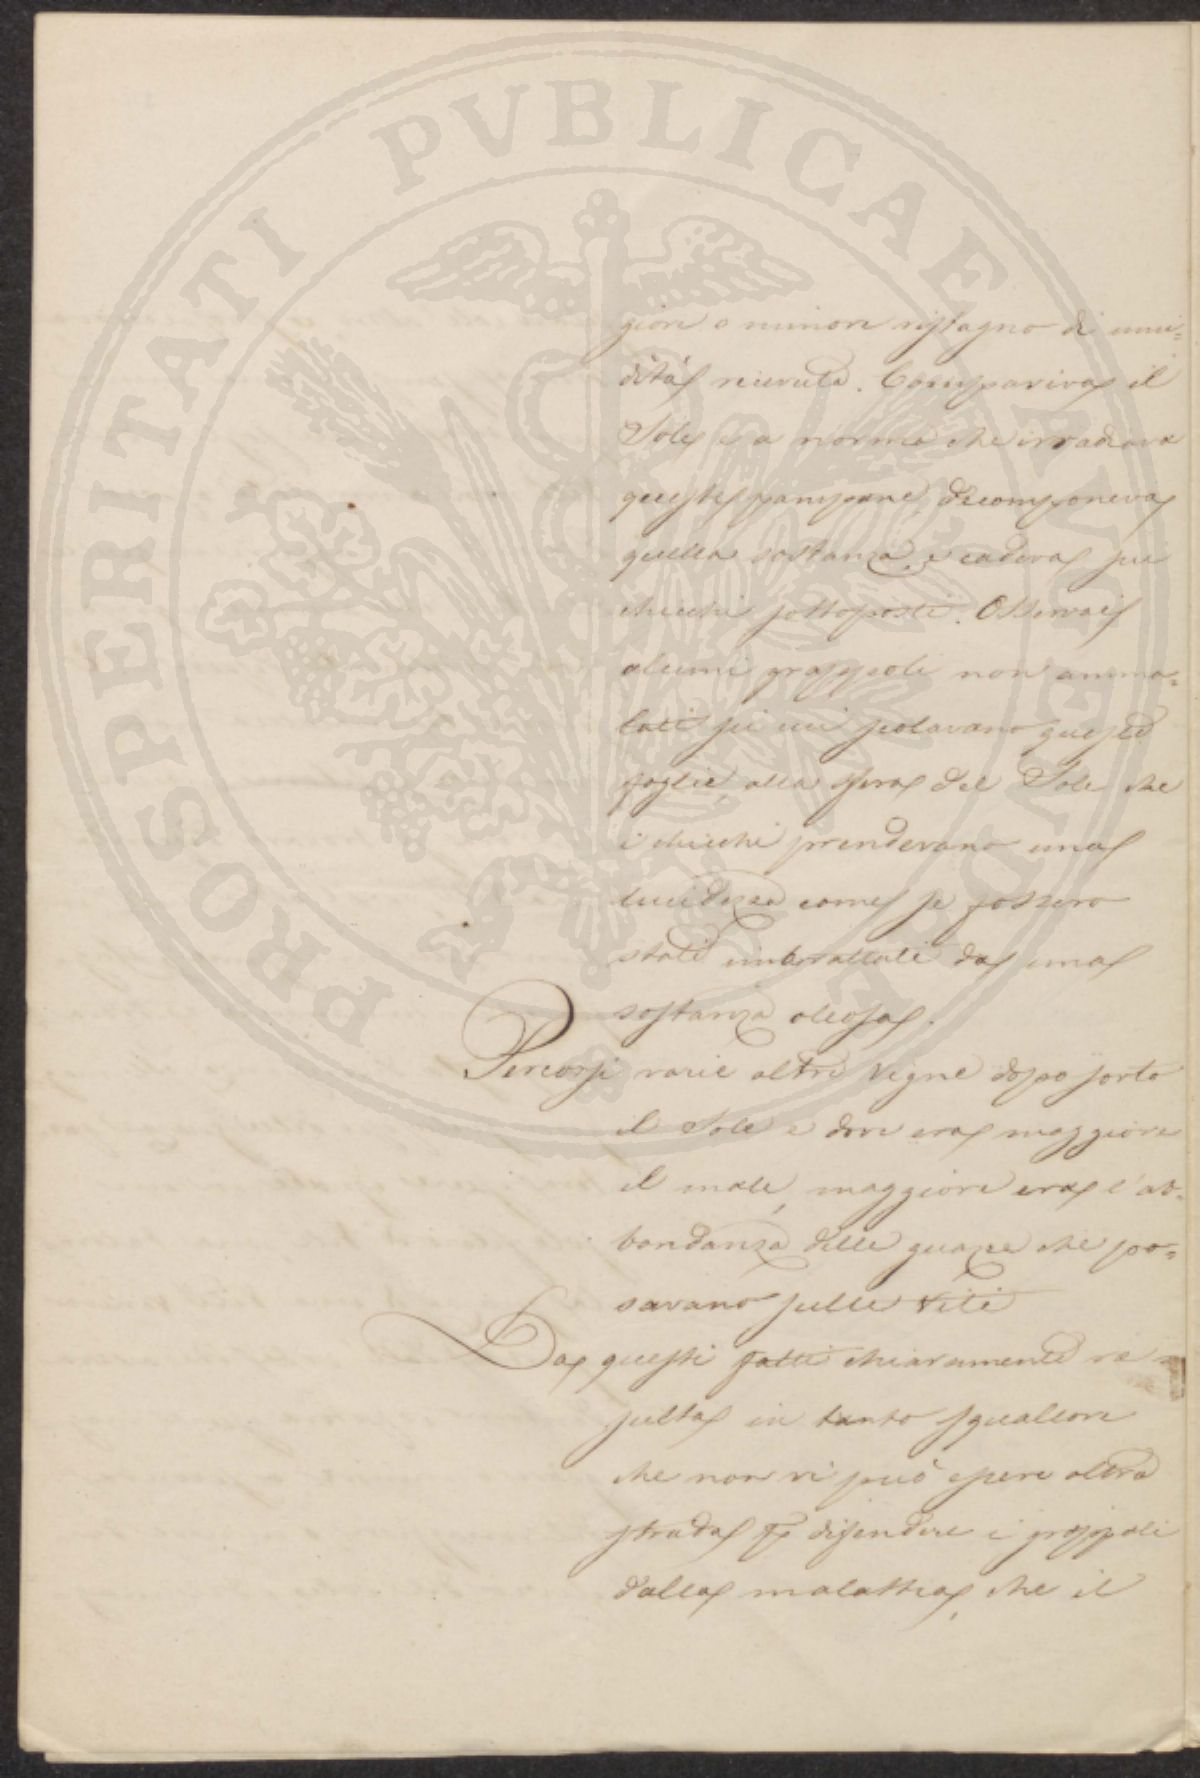 PROSPERITATI PVBLICAE AVGENDAE
giore o minore ristagno di umi=
dità ricevuta. Compariva il
Sole e a norma che irradiava
queste pampane, decomponeva
quella sostanza, e cadeva sui
chicchi sottoposti. Osservai
alcuni grappoli non amma=
lati su cui scolavano queste
foglie, alla sfera del Sole che
i chicchi prendevano una
lucidezza come se fossero
stati imbrattati da una
sostanza oleosa.
Percorsi varie altre vigne dopo sorto
il Sole e dove era maggiore
il male, maggiore era l'ab=
bondanza delle guazze che po=
savano sulle viti
Da questi fatti chiaramente re=
sulta in tanto squallore
che non vi può essere altra
strada p difendere i grappoli
dalla malattia, che il